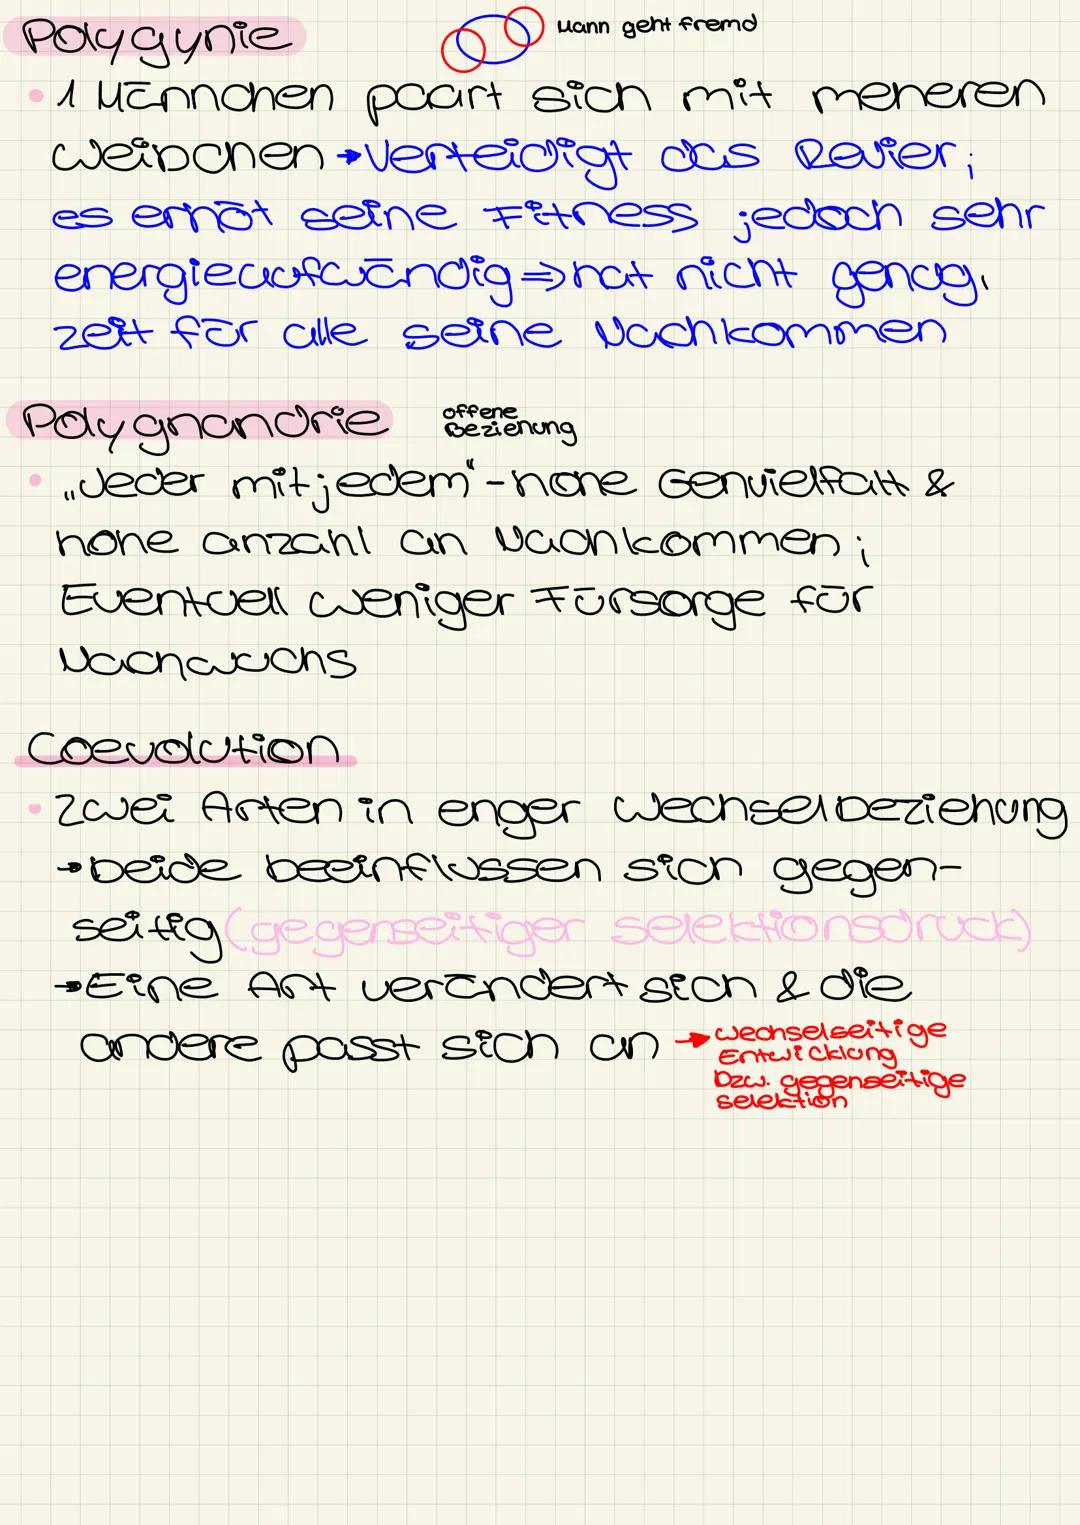 Polygynie
Mann geht fremd
• 1 Männchen paart sich mit meheren
Weibchen → Verteidigt das Revier;
es erhöt seine Fitness jedoch sehr
energieaufwändig ⇒ hat nicht genug
zeit für alle seine Nachkommen
Polygnandrie
offene
Beziehung
• „Jeder mit jedem“ - hohe Genvielfalt &
hohe anzahl an Nachkommen;
Eventuell weniger Fürsorge für
Nachwuchs
Coevolution
• Zwei Arten in enger Wechselbeziehung
→ beide beeinflussen sich gegen-
seitig (gegenseitiger selektionsdruck)
→ Eine Art verändert sich & die
andere passt sich an → wechselseitige
Entwicklung
bzw. gegenseitige
selektion